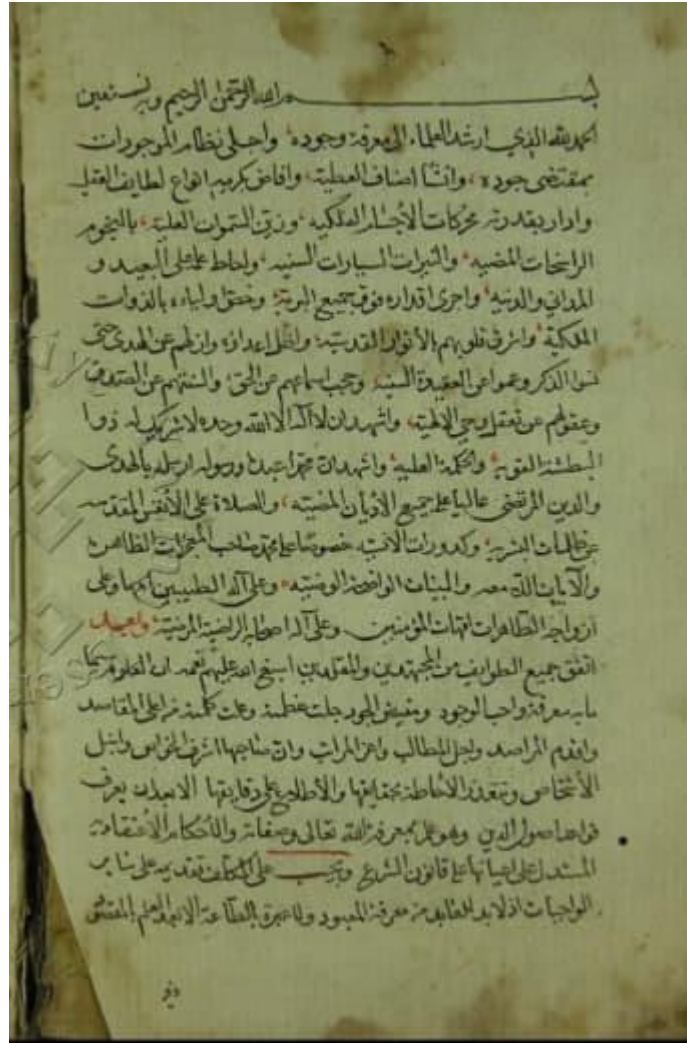 بسم الله الرحمن الرحيم وبه نستعين
الحمد لله الذي ارشد العلماء الى معرفة وجوده واجلى نظام الموجودات
بمقتضى جوده وانشأ اصناف العطية وافاض بكرمه انواع لطايف العقل
وادار بقدرته محركات الأجسام الفلكيه وزين السموات العلية بالنجوم
المضيه والنيرات السيارات السنيه واحاط علما على البعيد و
المداني والدنيه واجرى اقداره فوق جميع البرية وخص اولياءه بالذوات
الملكية واشرق قلوبهم بالأنوار القدسية واضل اعداؤه وازلهم عن الهدى حتى
نسوا الذكر وعموا عن العقيدة السنيه وحجب اسماعهم عن الحق والسنتهم عن الصدق
وعقولهم عن تعقل وحي الالهية واشهد ان لا اله الا الله وحده لا شريك له ذوا
البطشة القويه والحكمة العليه واشهد ان محمدا عبده ورسوله ارسله بالهدى
والدين المرتضى عاليا على جميع الأديان المضيه والصلاة على الأنفس المقدسه
عن ظلمات البشريه وكدورات خصوصا على محمد صاحب المعجزات الظاهرة
والآيات والبينات الواضحة الوضيه وعلى آله الطيبين وعلى
ازواجه الطاهرات امهات المؤمنين وعلى اصحابه الراضية المرضية وبعد
اتفق جميع الطوايف من المجتهدين والمقلدين اسبغ الله عليهم نعمه ان العلوم سيما
ما به معرفة واجب الوجود ومفيض الجود جلت عظمته وعلت كلمته من اعلى المقاصد
واقدم المراصد واجل المطالب واعز المراتب وان صاحبها اشرف الخواص وانبل
الأشخاص ويتعذر الاحاطة بحقايقها والأطلاع على دقايقها الا بعد ان يعرف
قواعد اصول الدين وهو علم بمعرفة الله تعالى وصفاته والأحكام الأعتقادية
المستدل على اعيانها على قانون الشرع ويجب على المكلف تقديمه على ساير
الواجبات اذ لا بد للعابد من معرفة المعبود ولا عبرة بالطاعة الا بعد العلم